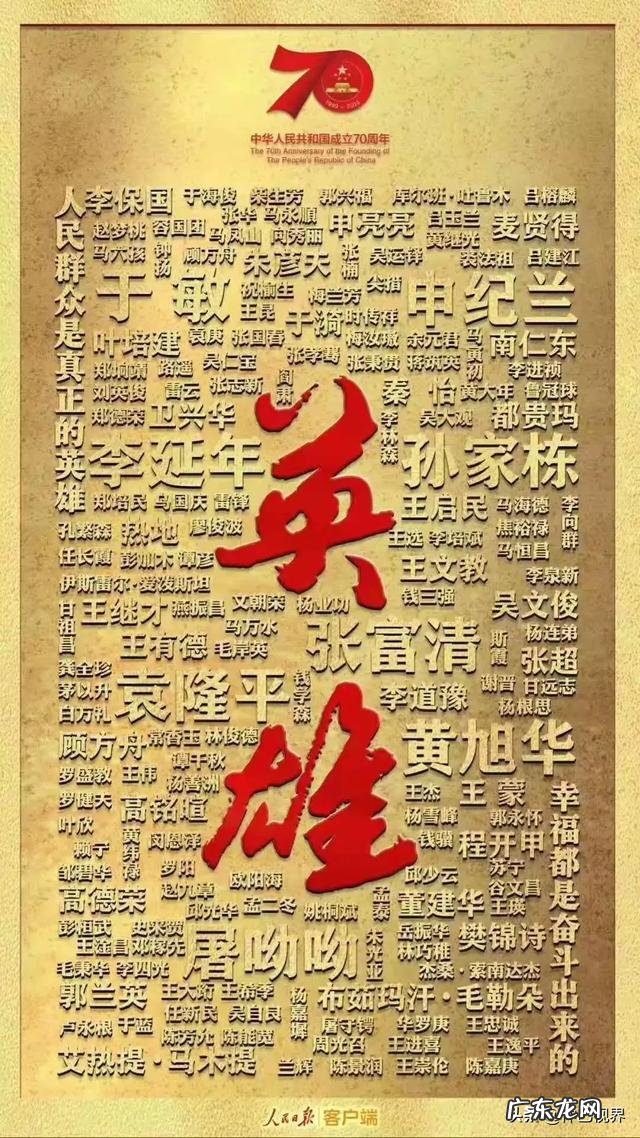 70
1949-2019
中华人民共和国成立70周年
The 70th Anniversary of the Founding of
The People's Republic of China
人民群众是真正的英雄
李保国 于海俊 柴生芳 郭兴福 库尔班·吐鲁木 吕榕麟
赵梦桃 容国团 张华 马永顺 申亮亮 吕玉兰 麦贤得
马六孩 钟扬 顾方舟 马凤山 向秀丽 张楠 吴运铎 黄继光 裘法祖 吕建江
朱彦夫
于敏 祝榆生 王昆 梅兰芳 尖措 申纪兰
于漪 时传祥
叶培建 袁庚 张国春 梅汝璈 余元君 马寅初 南仁东
郑垧靖 路遥 吴仁宝 张学骞 张秉贵 蒋筑英 李进祯
刘英俊 雷云 张志新 阎肃 秦怡 黄大年 鲁冠球
郑德荣 卫兴华 李林森 吴大观 都贵玛
李延年 孙家栋
英
郑培民 马国庆 雷锋 王启民 马海德 李向群
孔繁森 热地 廖俊波 王选 李培斌 焦裕禄
任长霞 彭加木 谭彦 王文教 马恒昌
伊斯雷尔·爱泼斯坦 李泉新
甘祖昌 王继才 燕振昌 文朝荣 杨业功 钱三强 吴文俊
马万水 张富清 斯霞 杨连弟
王有德 毛岸英 张超
龚全珍 袁隆平 钱学森 李道豫 谢晋 甘远志
茅以升 杨根思
白方礼
顾方舟 常香玉 林俊德 黄旭华
谭千秋
雄
罗盛教 王伟 杨善洲 王杰 王蒙
罗健夫 高铭暄 杨雪峰 郭永怀
叶欣 黄纬禄 闵恩泽 钱骥 程开甲
赖宁 邱少云 苏宁
邹碧华 罗阳 欧阳海 孟泰 谷文昌
高德荣 赵九章 邱光华 孟二冬 姚桐斌 董建华 王瑛
彭桓武 史来贺 朱光亚 岳振华 樊锦诗
王淦昌 邓稼先 屠呦呦 林巧稚
毛秉华 李四光 杰桑·索南达杰
郭兰英 王大珩 王希季 杨嘉墀 布茹玛汗·毛勒朵
任新民 吴自良 屠守锷 华罗庚 王忠诚
卢永根 于蓝 陈芳允 陈能宽 周光召 王进喜 王逸平
艾热提·马木提 兰辉 陈景润 王崇伦 陈嘉庚
幸福都是奋斗出来的
人民日报 客户端
广东龙网